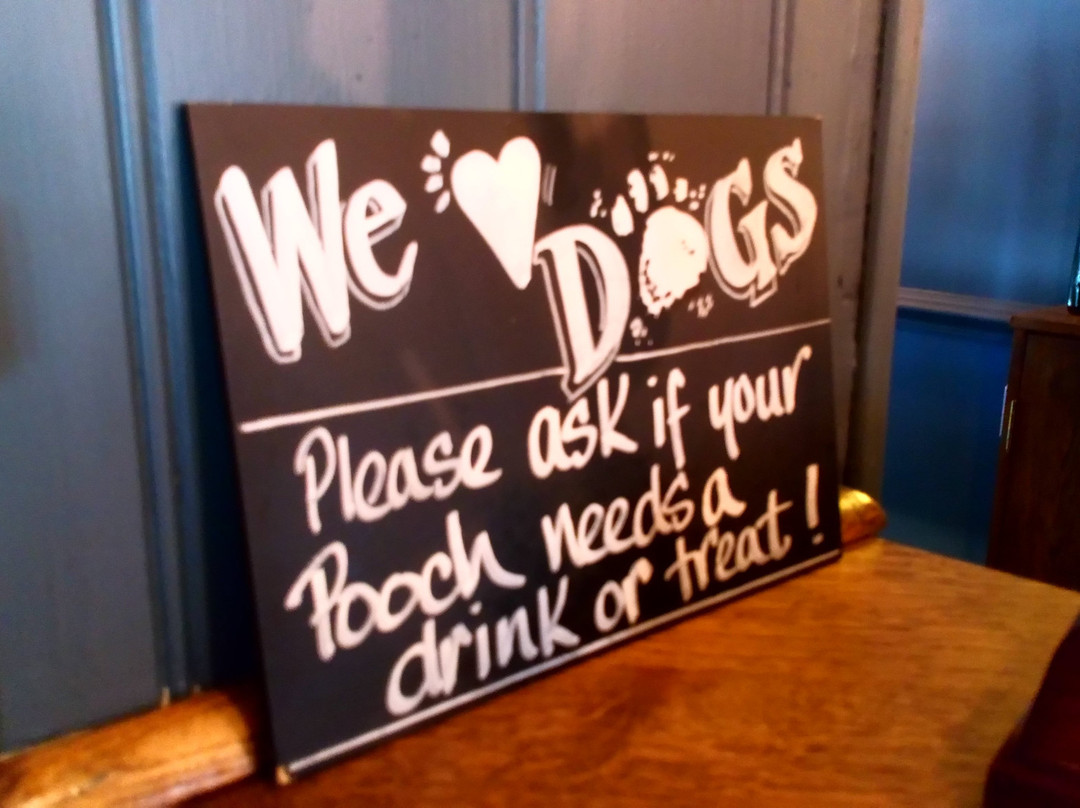 We ♥ DOGS
Please ask if your
Pooch needs a
drink or treat!